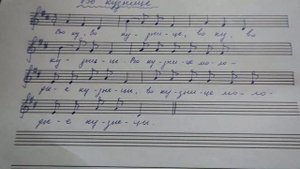 Во кузнице
Во ку, во ку - зни-це, во ку, во
ку - зни-це. Во кузнице мо-ло-
ды-е ку-зне-цы, во кузнице мо-ло-
ды-е ку-зне-цы.